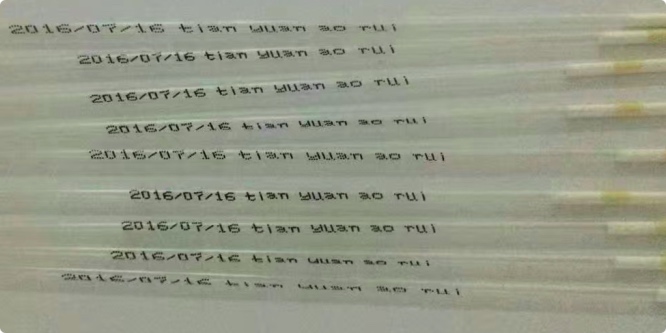 2016/07/16 tian yuan ao rui
2016/07/16 tian yuan ao rui
2016/07/16 tian yuan ao rui
2016/07/16 tian yuan ao rui
2016/07/16 tian yuan ao rui
2016/07/16 tian yuan ao rui
2016/07/16 tian yuan ao rui
2016/07/16 tian yuan ao rui
2016/07/16 tian yuan ao rui